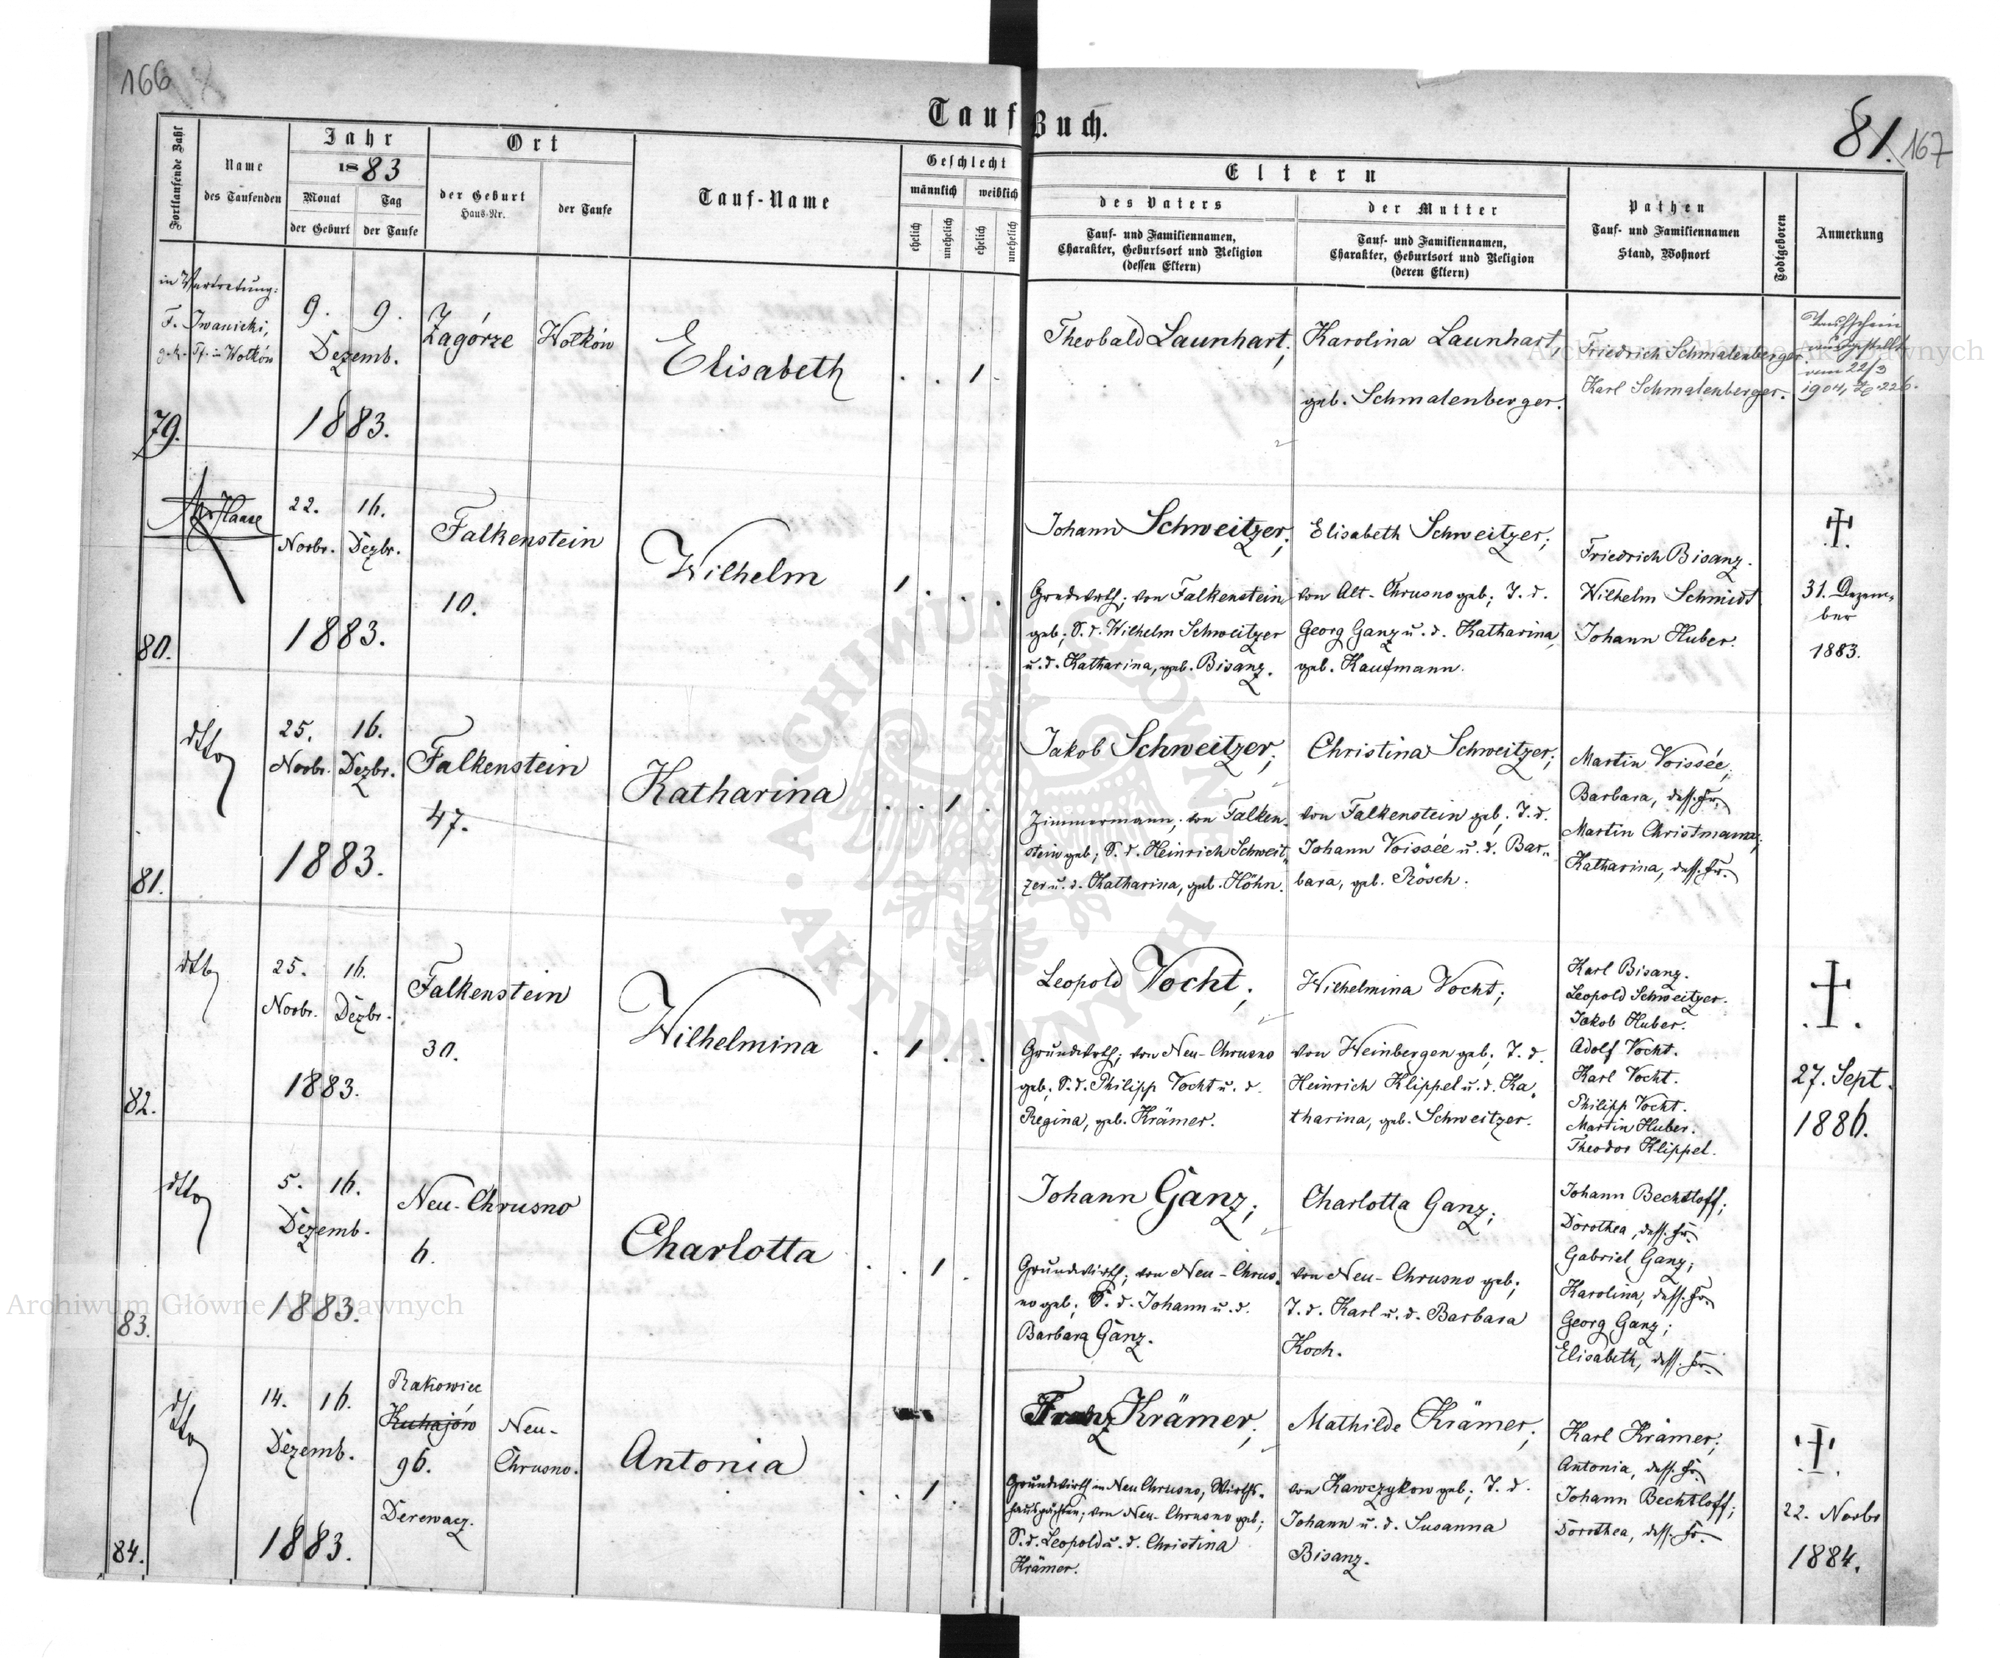 166
81.
167
Tauf Buch.
Fortlaufende Zahl
Name
des Taufenden
Jahr
1883
Monat
der Geburt
Tag
der Taufe
Ort
der Geburt
Haus-Nr.
der Taufe
Tauf-Name
Geschlecht
männlich
weiblich
ehelich
unehelich
ehelich
unehelich
Eltern
des Vaters
Tauf- und Familiennamen,
Charakter, Geburtsort und Religion
(dessen Eltern)
der Mutter
Tauf- und Familiennamen,
Charakter, Geburtsort und Religion
(deren Eltern)
Pathen
Tauf- und Familiennamen
Stand, Wohnort
Todtgeboren
Anmerkung
79.
in Vertretung:
F. Iwanicki,
Pf. in Wolków
9. 9.
Dezemb.
1883.
Zagórze
Wolków
Elisabeth
. . 1 .
Theobald Launhart;
Karolina Launhart,
geb. Schmalenberger.
Friedrich Schmalenberger
Karl Schmalenberger.
Taufschein
ausgestellt
vom 22/3
1904, 226.
80.
Haase
22. 16.
Novbr. Dezbr.
1883.
Falkenstein
10.
Wilhelm
1 . . .
Johann Schweitzer;
Grndwrth; von Falkenstein
geb; S. d. Wilhelm Schweitzer
u. d. Katharina, geb. Bisanz.
Elisabeth Schweitzer;
von Alt-Chrusno geb; T. d.
Georg Ganz u. d. Katharina,
geb. Kaufmann.
Friedrich Bisanz.
Wilhelm Schmidt
Johann Huber.
†
31. Dezem-
ber
1883.
81.
dtto
25. 16.
Novbr. Dezbr.
1883.
Falkenstein
47.
Katharina
. . 1 .
Jakob Schweitzer;
Zimmermann; von Falken-
stein geb; S. d. Heinrich Schweit-
zer u. d. Katharina, geb. Höhn.
Christina Schweitzer;
von Falkenstein geb; T. d.
Johann Voissée u. d. Bar-
bara, geb. Rösch.
Martin Voissée;
Barbara, dess. Fr.
Martin Christmann;
Katharina, dess. Fr.
82.
dtto
25. 16.
Novbr. Dezbr.
1883.
Falkenstein
30.
Wilhelmina
. 1 . .
Leopold Vocht;
Grundwrth; von Neu-Chrusno
geb; S. d. Philipp Vocht u. d.
Regina, geb. Krämer.
Wilhelmina Vocht;
von Weinbergen geb; T. d.
Heinrich Klippel u. d. Ka-
tharina, geb. Schweitzer.
Karl Bisanz.
Leopold Schweitzer.
Jakob Huber.
Adolf Vocht.
Karl Vocht.
Philipp Vocht.
Martin Huber.
Theodor Klippel.
†
27. Sept.
1886.
83.
dtto
5. 16.
Dezemb.
1883.
Neu-Chrusno
6.
Charlotta
. . 1 .
Johann Ganz;
Grundwirth; von Neu-Chrus-
no geb; S. d. Johann u. d.
Barbara Ganz.
Charlotta Ganz;
von Neu-Chrusno geb;
T. d. Karl u. d. Barbara
Koch.
Johann Bechtloff;
Dorothea, dess. Fr.
Gabriel Ganz;
Karolina, dess. Fr.
Georg Ganz;
Elisabeth, dess. Fr.
84.
dtto
14. 16.
Dezemb.
1883.
Rakowiec
Kuhajów
96.
Derewacz.
Neu-
Chrusno.
Antonia
. . 1 .
Franz Krämer;
Grundwirth in Neu Chrusno, Wirths-
hauspächter; von Neu-Chrusno geb;
S. d. Leopold u. d. Christina
Krämer.
Mathilde Krämer;
von Kawczykow geb; T. d.
Johann u. d. Susanna
Bisanz.
Karl Krämer;
Antonia, dess. Fr.
Johann Bechtloff;
Dorothea, dess. Fr.
†
22. Novbr
1884.
Archiwum Główne Akt Dawnych
Archiwum Główne Akt Dawnych
ARCHIWUM GŁÓWNE AKT DAWNYCH